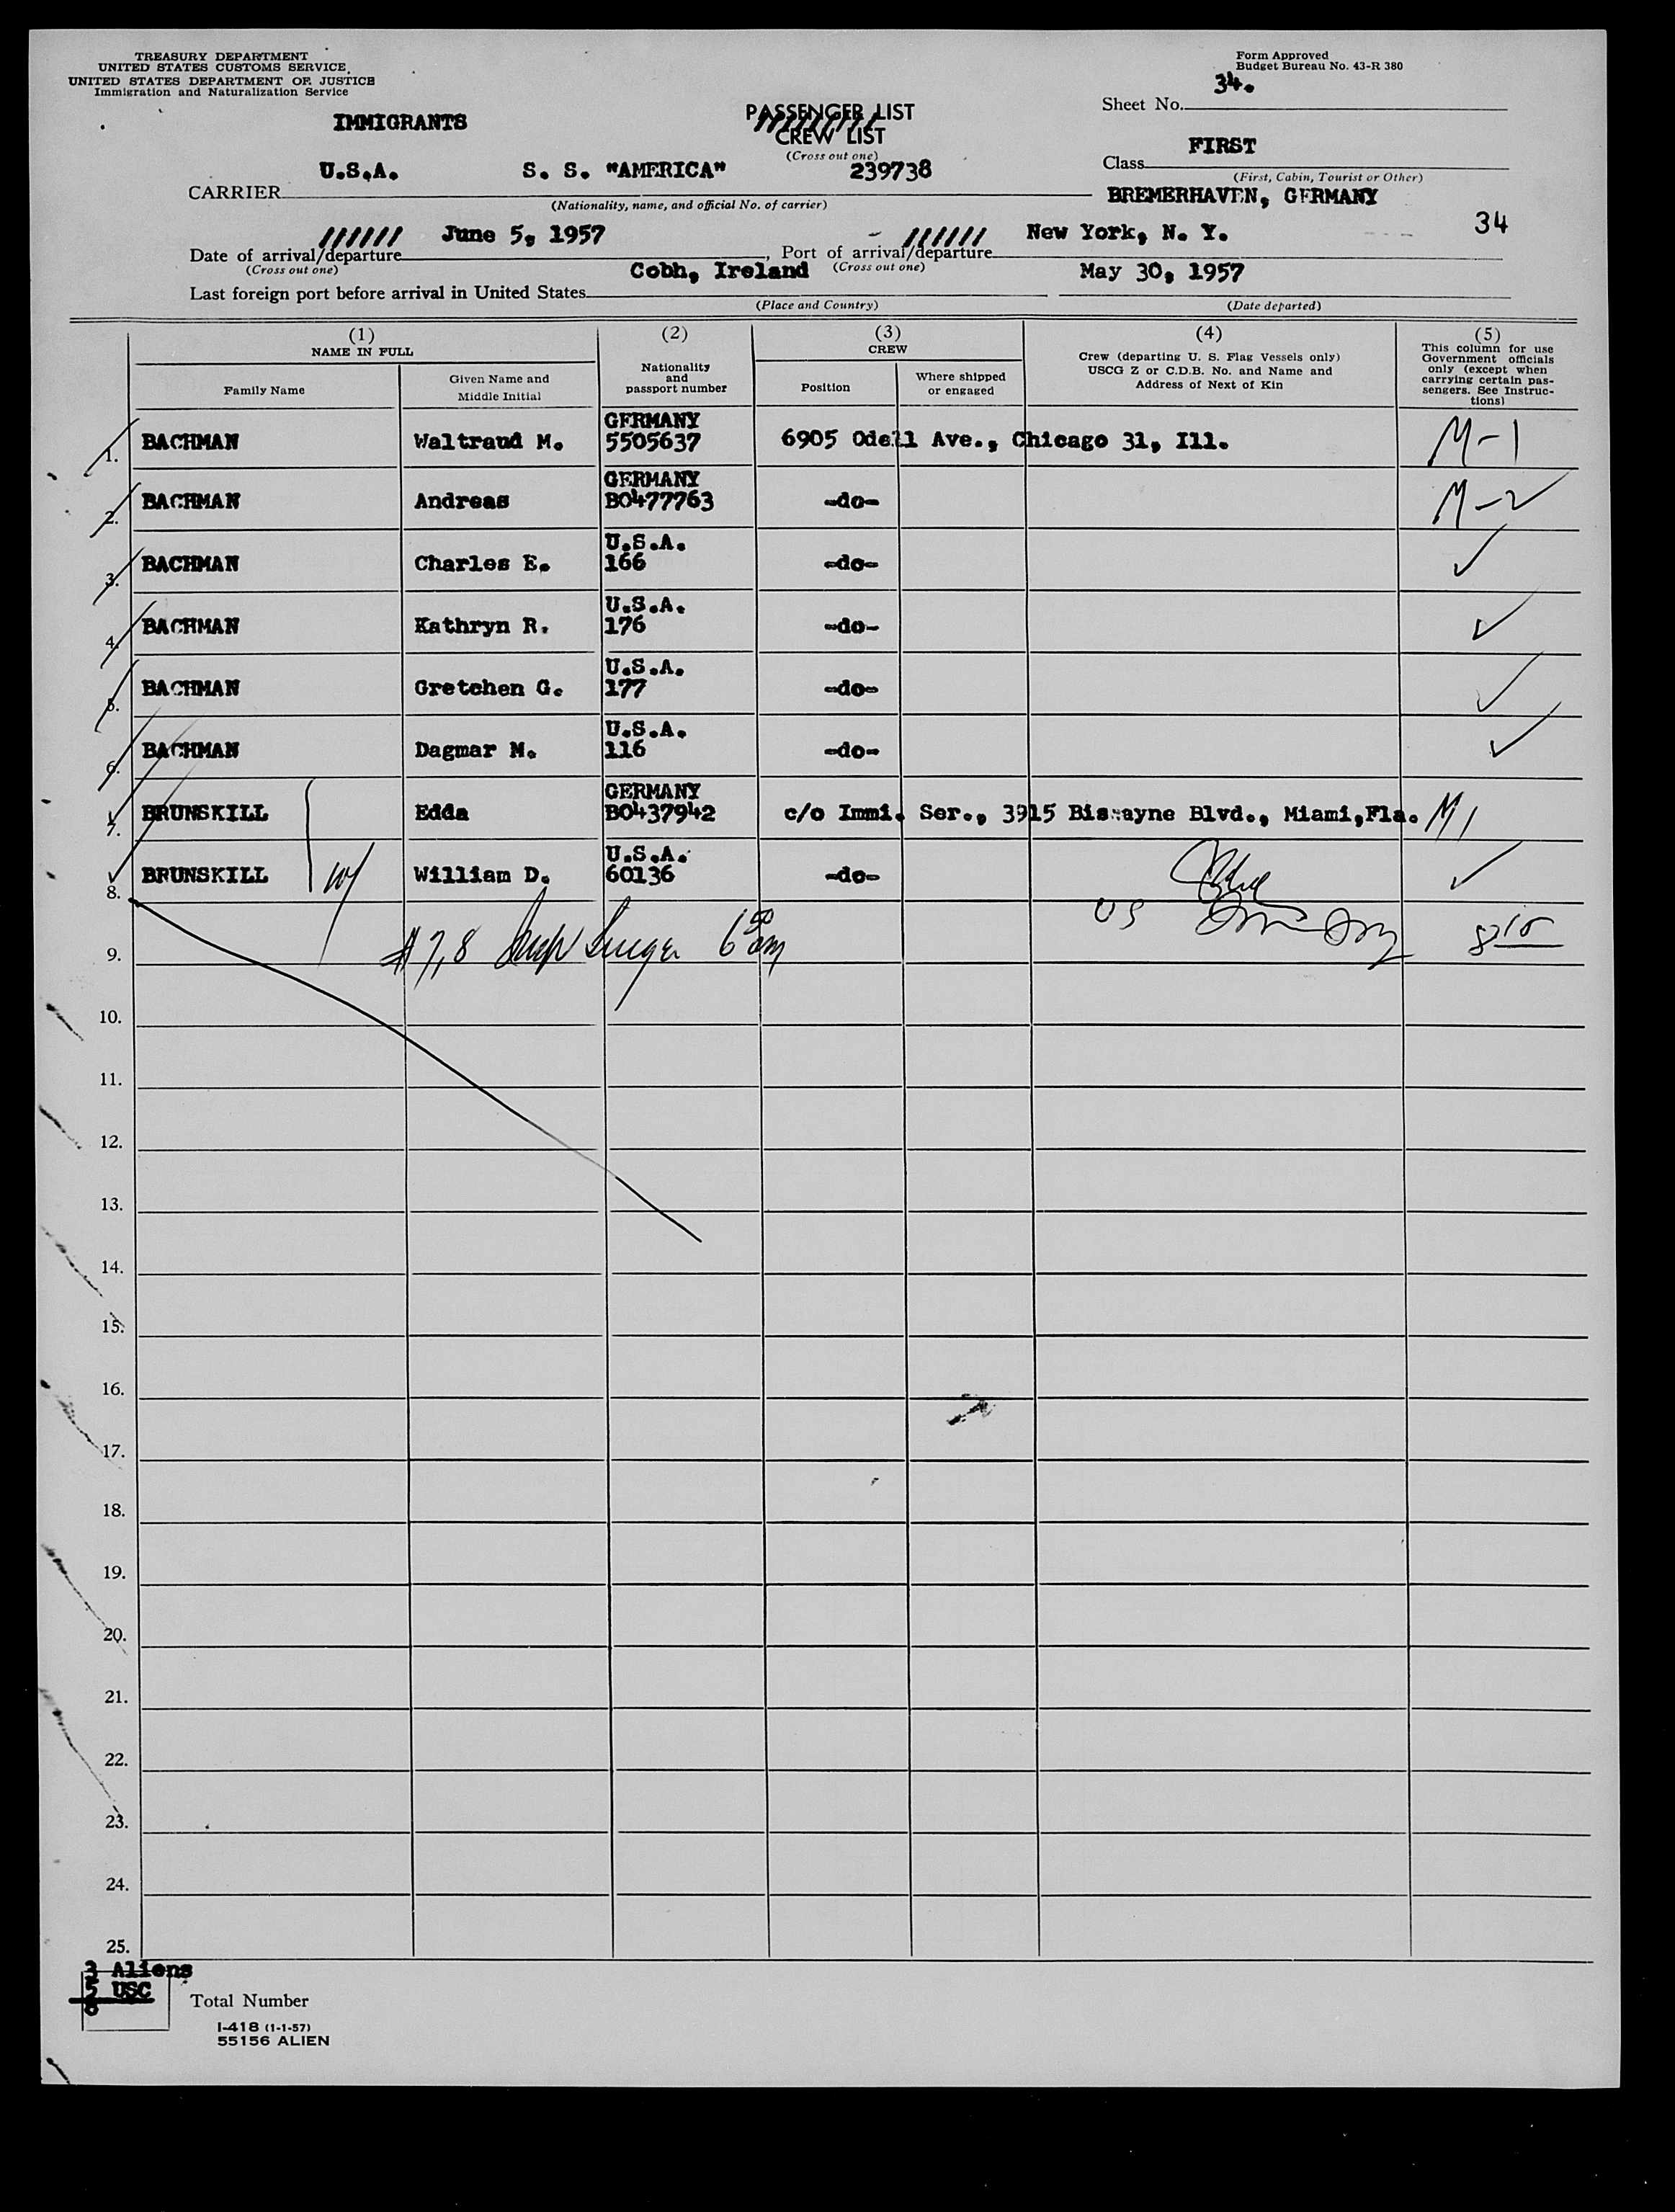 TREASURY DEPARTMENT
UNITED STATES CUSTOMS SERVICE
UNITED STATES DEPARTMENT OF JUSTICE
Immigration and Naturalization Service
Form Approved
Budget Bureau No. 43-R 380
34.
Sheet No.
IMMIGRANTS
PASSENGER LIST
CREW LIST
(Cross out one)
FIRST
Class
(First, Cabin, Tourist or Other)
U.S.A. S. S. "AMERICA" 239738
CARRIER
(Nationality, name, and official No. of carrier)
BREMERHAVEN, GERMANY
34
June 5, 1957 New York, N. Y.
Date of arrival/departure, Port of arrival/departure
(Cross out one) (Cross out one)
Cobh, Ireland May 30, 1957
Last foreign port before arrival in United States
(Place and Country) (Date departed)
(1) (2) (3) (4) (5)
NAME IN FULL
Family Name
Given Name and
Middle Initial
Nationality
and
passport number
CREW
Position
Where shipped
or engaged
Crew (departing U. S. Flag Vessels only)
USCG Z or C.D.B. No. and Name and
Address of Next of Kin
This column for use
Government officials
only (except when
carrying certain pas-
sengers. See Instruc-
tions)
GERMANY
1. BACHMAN Waltraud M. 5505637 6905 Odell Ave., Chicago 31, Ill. M-1
GERMANY
2. BACHMAN Andreas B0477763 -do- M-2
U.S.A.
3. BACHMAN Charles E. 166 -do-
U.S.A.
4. BACHMAN Kathryn R. 176 -do-
U.S.A.
5. BACHMAN Gretchen G. 177 -do-
U.S.A.
6. BACHMAN Dagmar M. 116 -do-
GERMANY
7. BRUNSKILL Edda B0437942 c/o Immi. Ser., 3915 Biscayne Blvd., Miami,Fla. M1
U.S.A.
8. BRUNSKILL William D. 60136 -do-
US
9. # 7,8
10.
11.
12.
13.
14.
15.
16.
17.
18.
19.
20.
21.
22.
23.
24.
25.
3 Aliens
5 USC
8
Total Number
I-418 (1-1-57)
55156 ALIEN